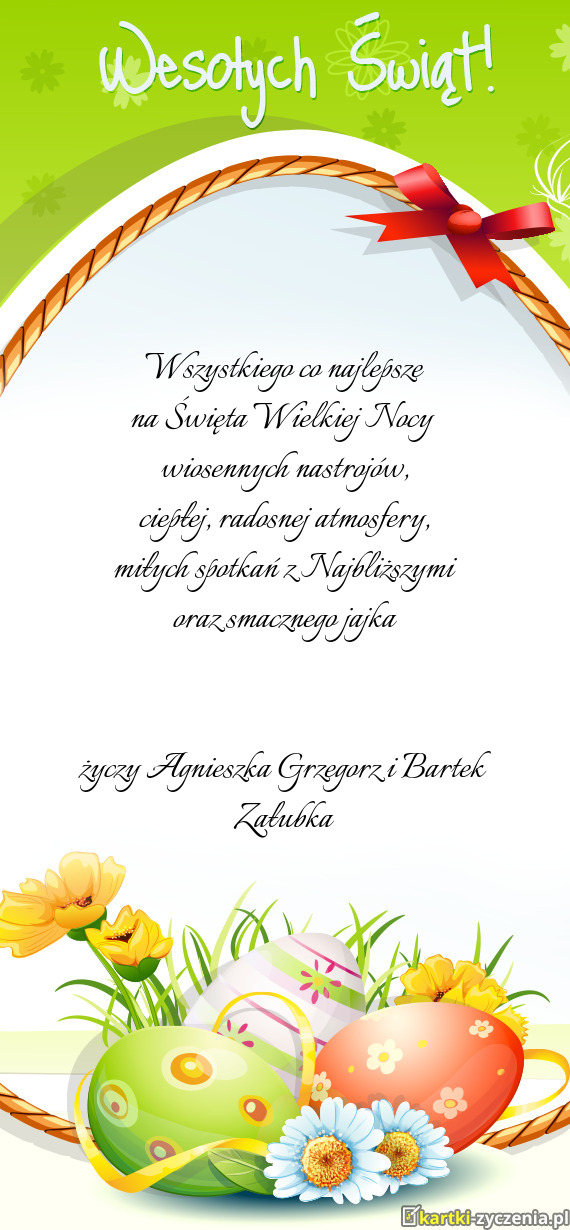 Wesołych Świąt!
Wszystkiego co najlepsze
na Święta Wielkiej Nocy
wiosennych nastrojów,
ciepłej, radosnej atmosfery,
miłych spotkań z Najbliższymi
oraz smacznego jajka
życzy Agnieszka Grzegorz i Bartek
Załubka
kartki-zyczenia.pl